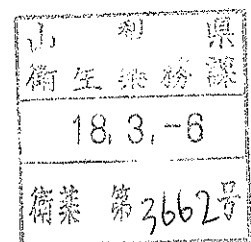 山梨県
衛生薬務課
18. 3. -6
衛薬 第3662号